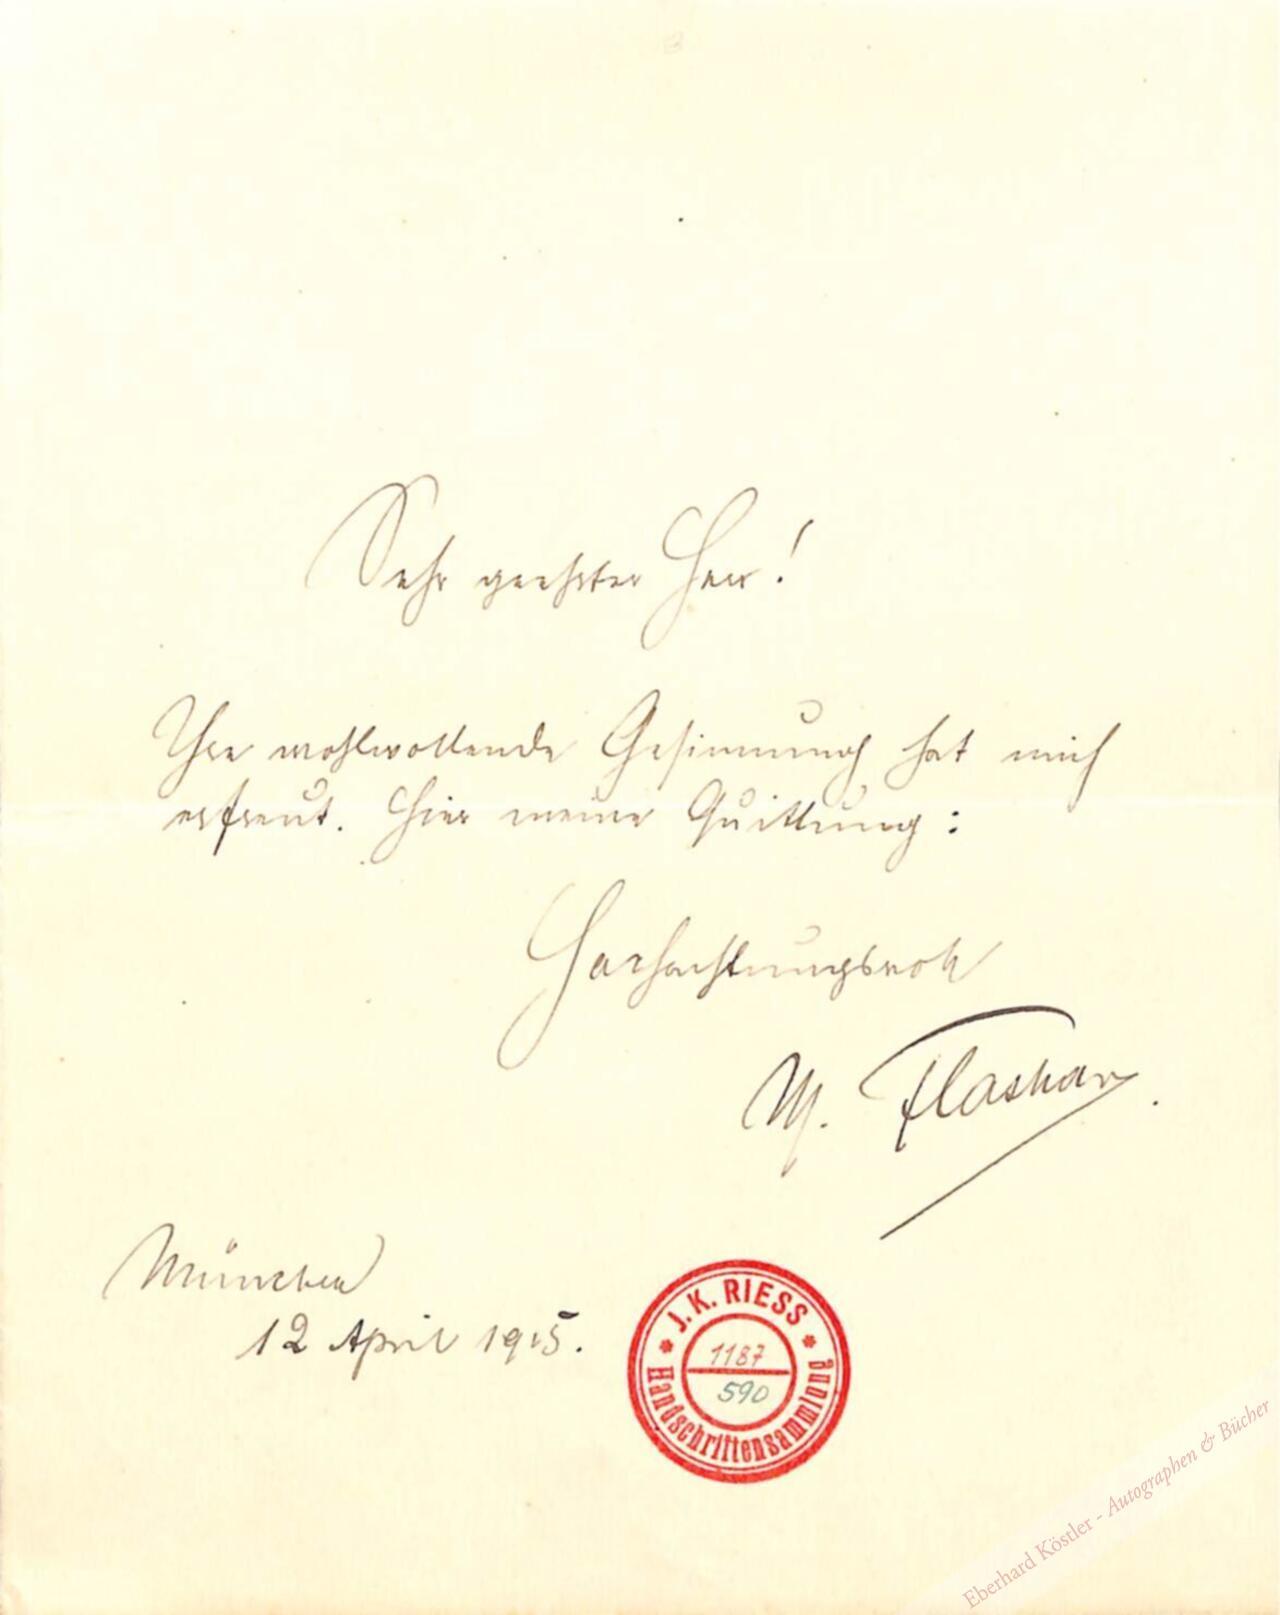 Sehr geehrter Herr!
Ihre wohlwollende Gesinnung hat mich
erfreut. Hier meine Quittung:
Hochachtungsvoll
M. Flashar.
München
12 April 1915.
* J. K. RIESS *
1187
590
Handschriftensammlung
Eberhard Köstler - Autographen & Bücher